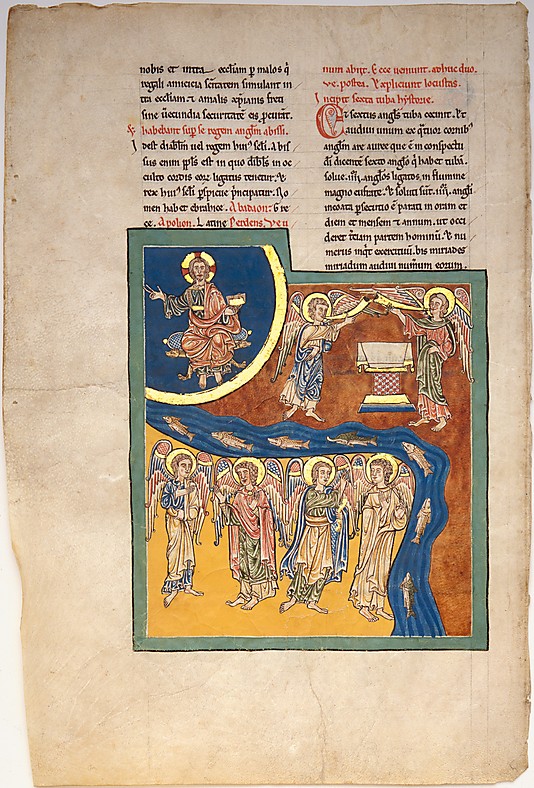 nobis et intra eccl̄iam p malos q̄
regali amicicia sc̄itatem simulant in
tra eccl̄iam et amalis xp̄ianis freti
sine uerecundia securitatē eis p̄curāt.
& habebant sup se regem angl̄m abissi.
I dest diabl̄m uel regem huiꝰ sc̄li. Abis
sus enim pl̄s est in quo diabl̄s in oc
culto cordis eoꝝ ligatus tenetur. &
rex huiꝰ sc̄li pspicue principatur. No
men habet ebraice. Abadaon: Gre
ce. Apolion. Latine Perdens. Ve u
num abiit. & ecce ueniunt. adhuc duo.
ve. postea. Expliciunt locustas.
Incipit sexta tuba hystorie.
Et sextus angl̄s tuba cecinit. Et
audiui unum ex q̄tuor cornibꝰ
angl̄m are auree que ē in conspectu
dī dicentē sexto angl̄o q̄ habet tubā.
solue .iiii. angl̄os ligatos, in flumine
magno eufrate. & soluti sūt .iiii. angl̄i
incoata p̄secutio ē parati in oram et
diem et mensem et annum. ut occi
deret t̄ciam partem hominū. & nu
merus inq̄t exercituū. bis miriades
miriadum audiui num̄um eorum.